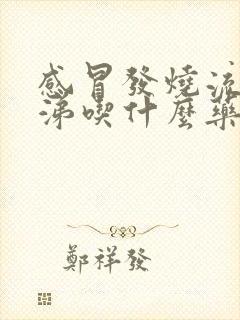 感冒發燒流
涕喫什麼藥
鄭祥發